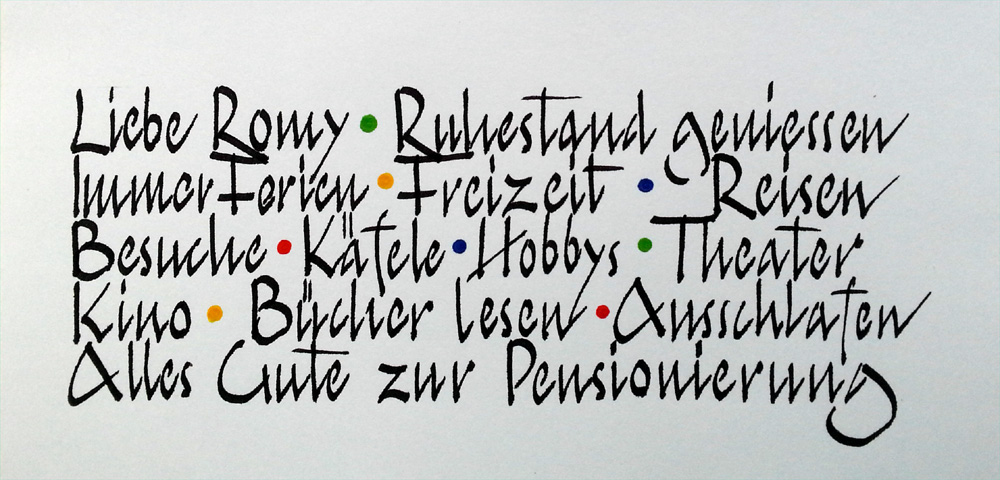 Liebe Romy • Ruhestand geniessen
Immer Ferien • Freizeit • Reisen
Besuche • Käfele • Hobbys • Theater
Kino • Bücher lesen • Ausschlafen
Alles Gute zur Pensionierung